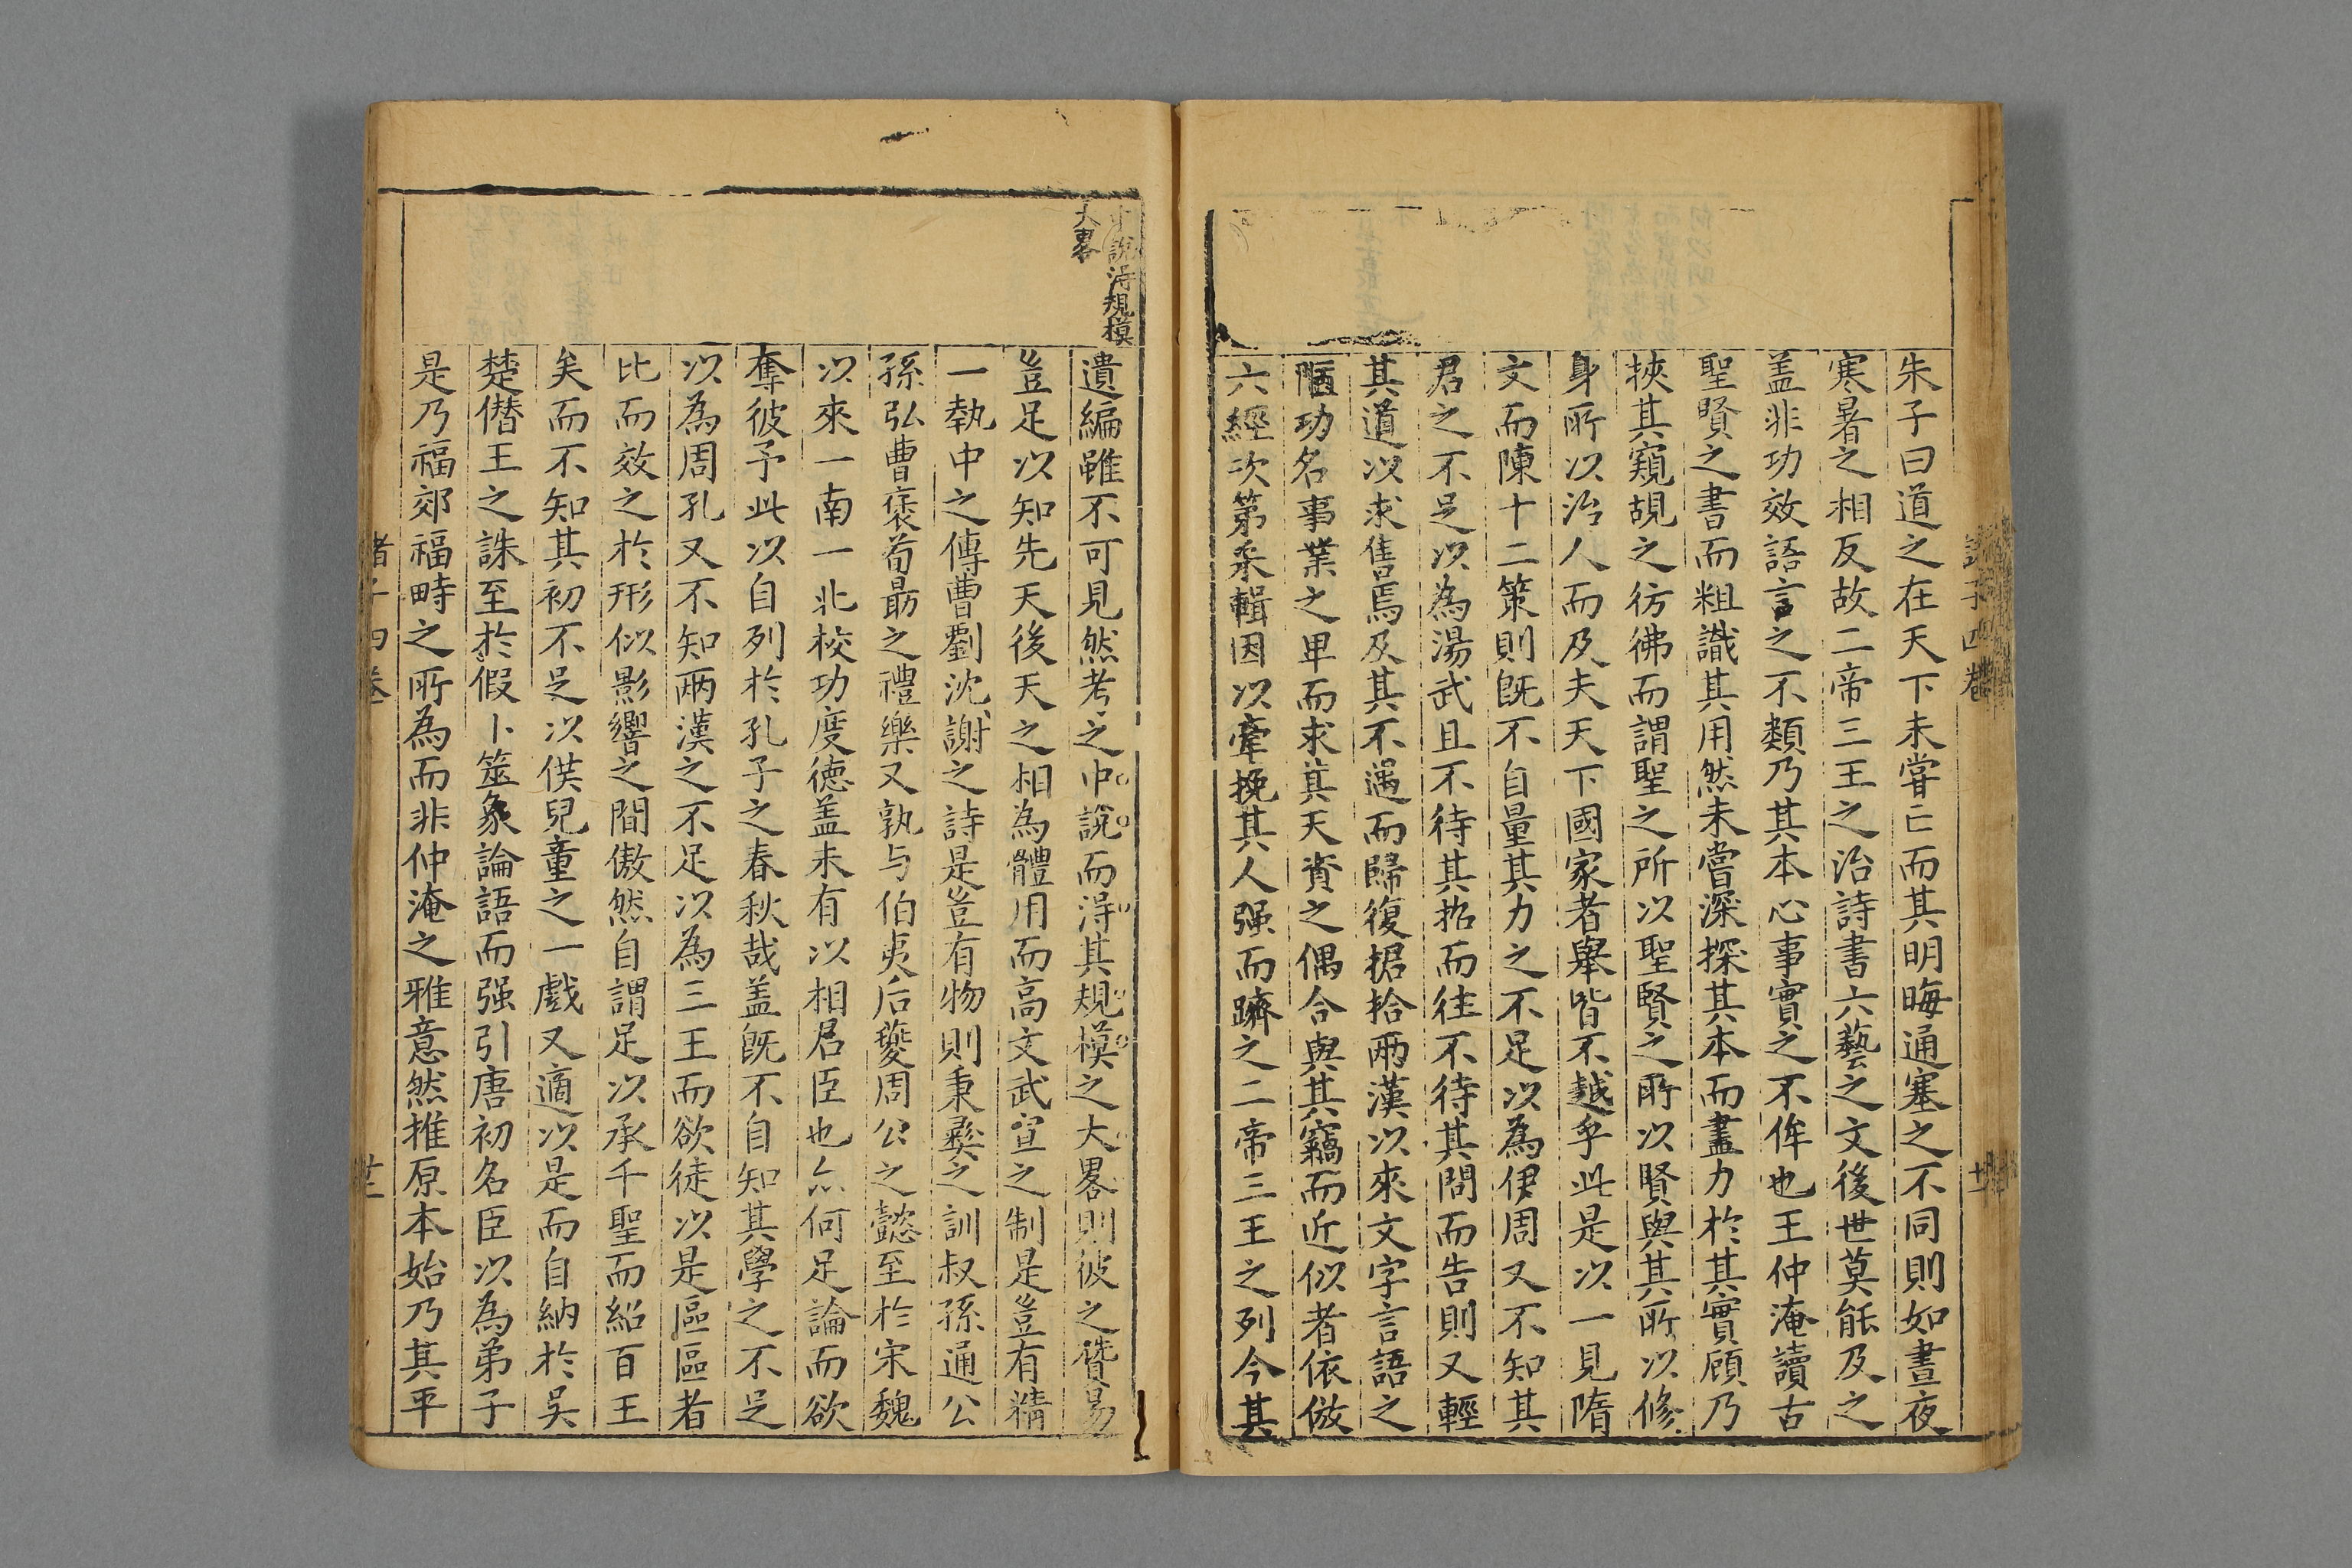 朱子曰道之在天下未嘗亡而其明晦通塞之不同則如晝夜
寒暑之相反故二帝三王之治詩書六藝之文後世莫能及之
盖非功效語言之不類乃其本心事實之不侔也王仲淹讀古
聖賢之書而粗識其用然未嘗深探其本而盡力於其實顧乃
挾其窺覘之彷彿而謂聖之所以聖賢之所以賢與其所以修
身所以治人而及夫天下國家者舉皆不越乎此是以一見隋
文而陳十二策則既不自量其力之不足以為伊周又不知其
君之不足以為湯武且不待其招而往不待其問而告則又輕
其道以求售焉及其不遇而歸復据拾兩漢以來文字言語之
陋功名事業之卑而求其天資之偶合與其竊而近似者依倣
六經次第采輯因以牽挽其人强而躋之二帝三王之列今其
說得規模
大畧
遺編雖不可見然考之中說而得其規模之大畧則彼之贊易
豈足以知先天後天之相為體用而高文武宣之制是豈有精
一執中之傳曹劉沈謝之詩是豈有物則秉彝之訓叔孫通公
孫弘曹褒荀勗之禮樂又孰与伯夷后夔周公之懿至於宋魏
以來一南一北校功度德盖未有以相君臣也亦何足論而欲
奪彼予此以自列於孔子之春秋哉盖既不自知其學之不足
以為周孔又不知兩漢之不足以為三王而欲徒以是區區者
比而效之於形似影響之間傲然自謂足以承千聖而紹百王
矣而不知其初不足以供兒童之一戲又適以是而自納於吳
楚僭王之誅至於假卜筮象論語而强引唐初名臣以為弟子
是乃福郊福畤之所為而非仲淹之雅意然推原本始乃其平
諸子四卷